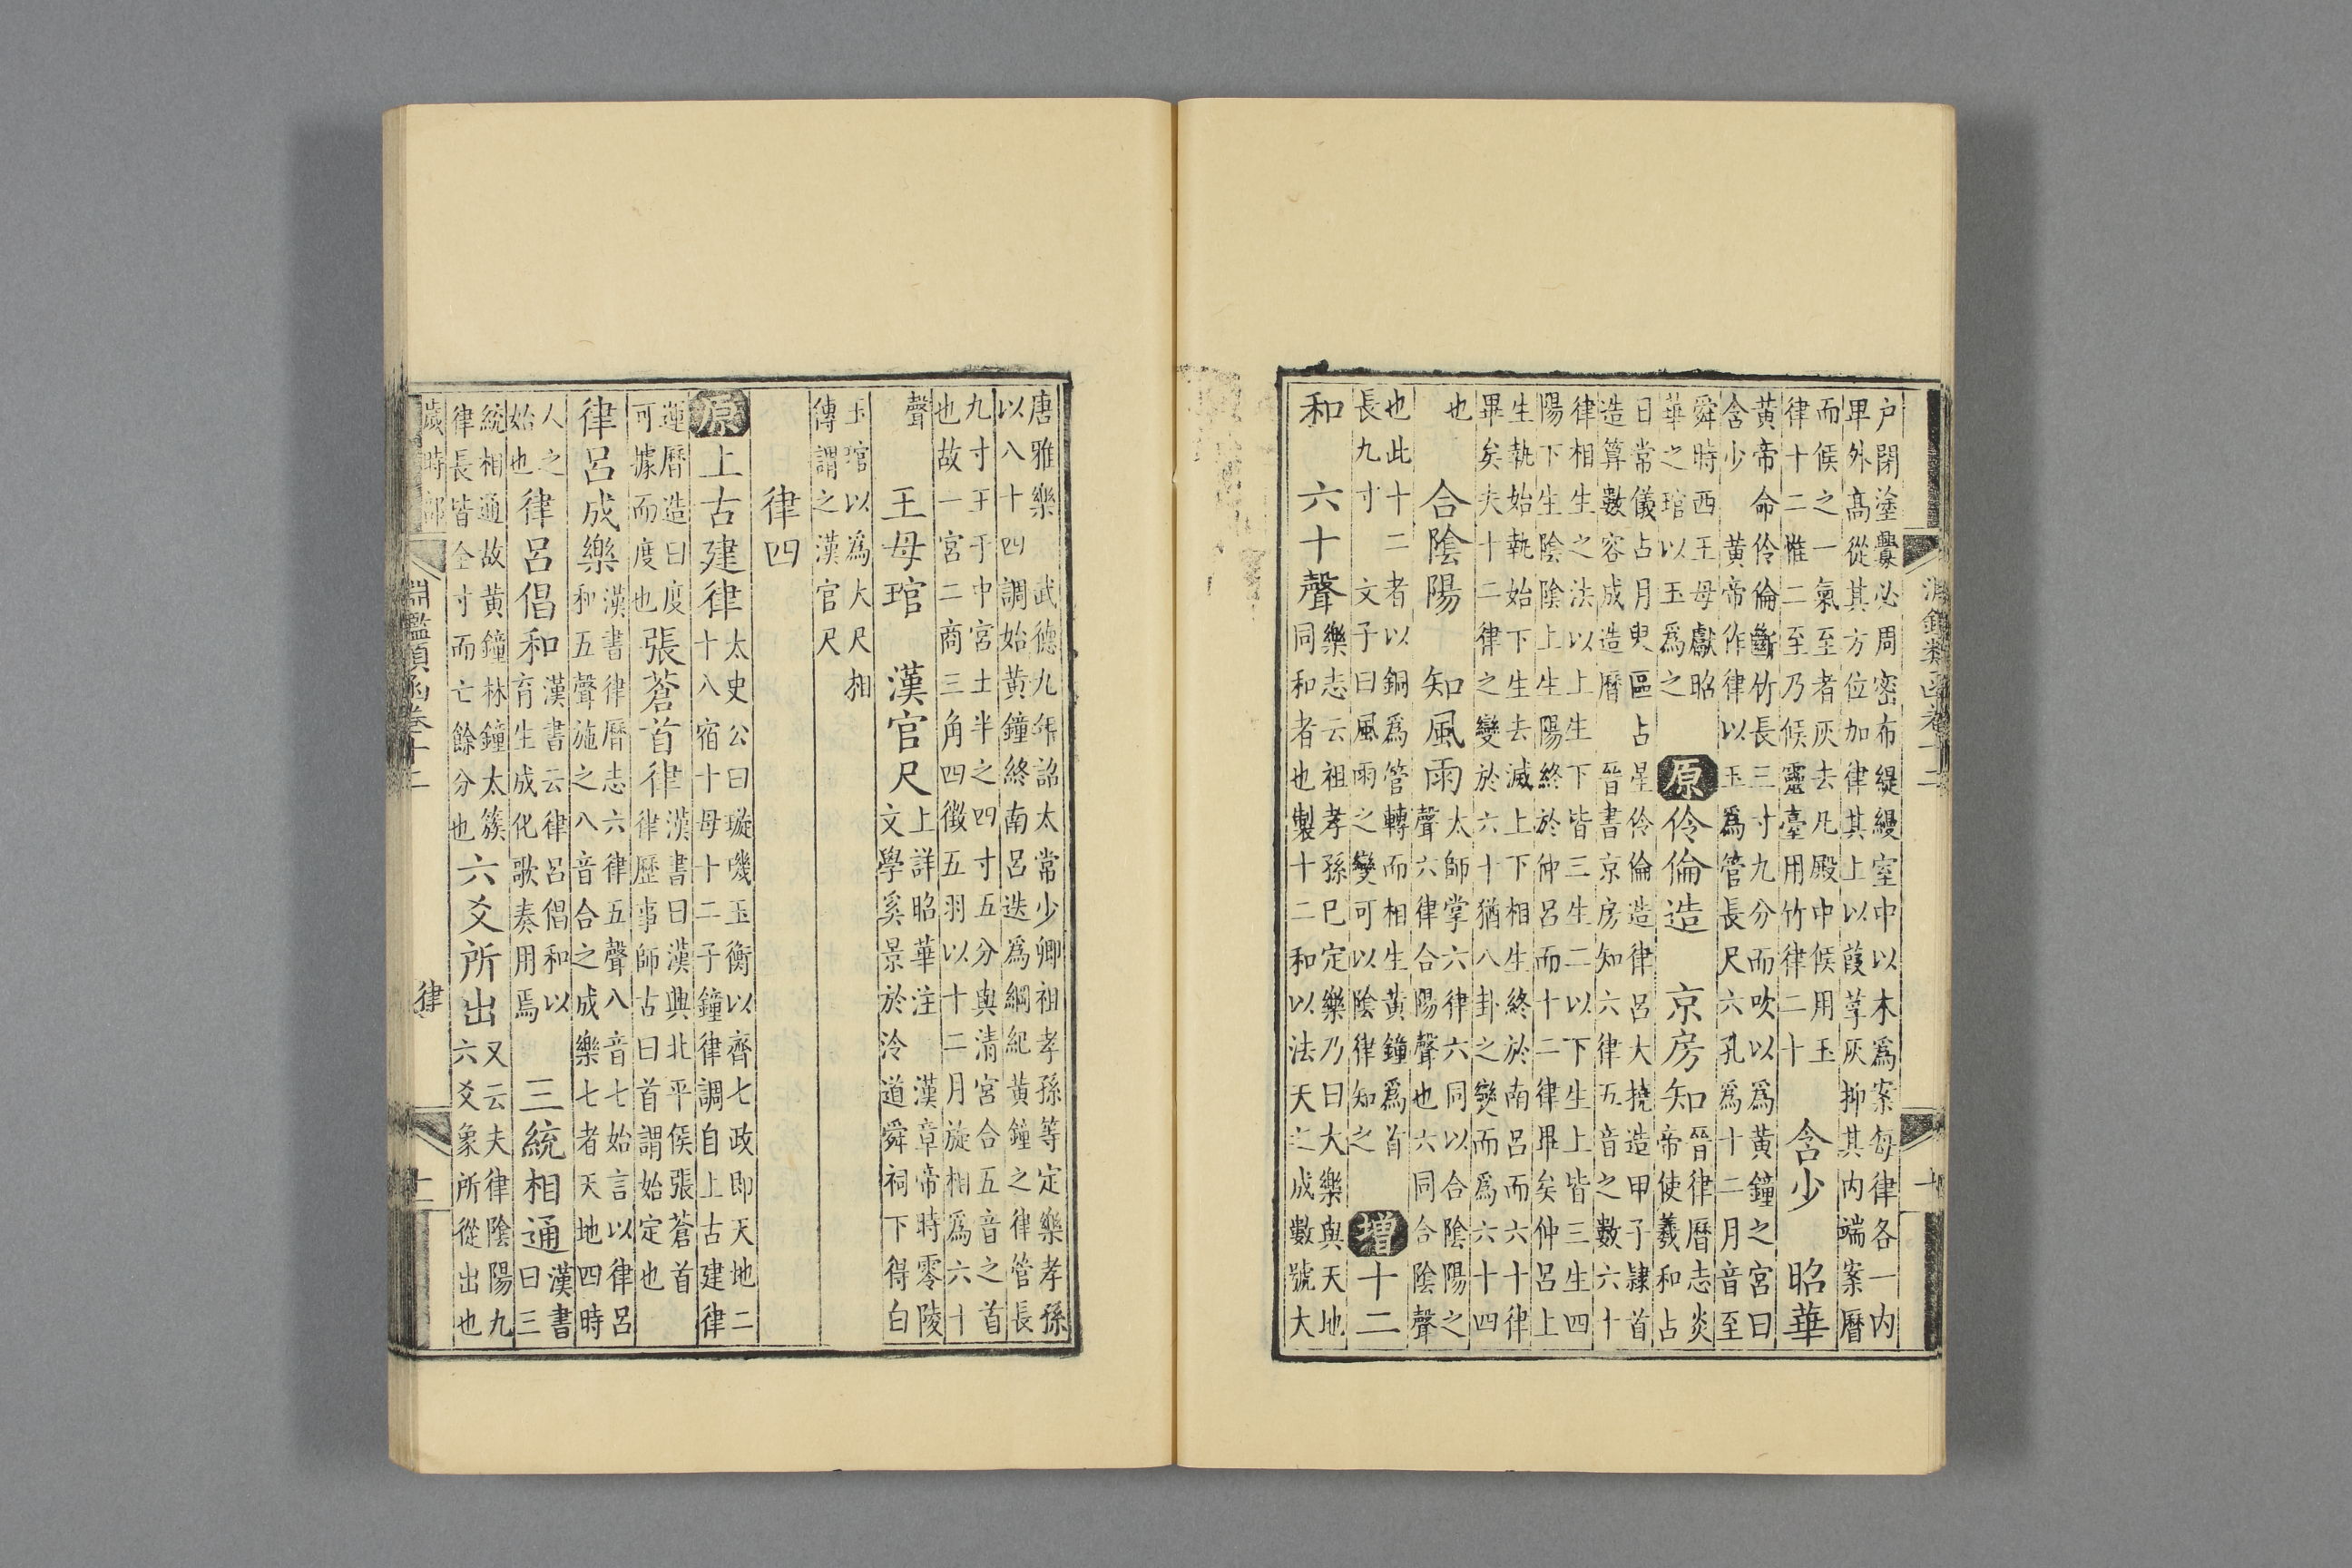 淵鑑類函卷十二
户閉塗釁必周密布緹縵室中以木爲案每律各一内
畢外髙從其方位加律其上以葭莩灰抑其内端案曆
而候之一氣至者灰去凡殿中候用玉
律十二惟二至乃候靈臺用竹律二十
含少 昭華
黄帝命伶倫斷竹長三寸九分而吹以爲黄鐘之宮曰
含少 黄帝作律以玉爲管長尺六孔爲十二月音至
舜時西王母獻昭
華之琯以玉爲之
原 伶倫造 京房知
晉律曆志炎
帝使羲和占
日常儀占月臾區占星伶倫造律呂大撓造甲子隸首
造算數容成造曆 晉書京房知六律五音之數六十
律相生之法以上生下皆三生二以下生上皆三生四
陽下生陰陰上生陽終於仲呂而十二律畢矣仲呂上
生執始執始下生去滅上下相生終於南呂而六十律
畢矣夫十二律之變於六十猶八卦之變而爲六十四
也
合陰陽 知風雨
太師掌六律六同以合陰陽之
聲六律合陽聲也六同合陰聲
也此十二者以銅爲管轉而相生黄鐘爲首
長九寸 文子曰風雨之變可以陰律知之
增 十二
和 六十聲
樂志云祖孝孫已定樂乃曰大樂與天地
同和者也製十二和以法天之成數號大
唐雅樂 武德九年詔太常少卿祖孝孫等定樂孝孫
以八十四調始黄鐘終南呂迭爲綱紀黄鐘之律管長
九寸王于中宮土半之四寸五分與清宮合五音之首
也故一宮二商三角四徵五羽以十二月旋相爲六十
聲
王母琯 漢官尺
上詳昭華注 漢章帝時零陵
文學奚景於泠道舜祠下得白
玉琯以為大尺相
傳謂之漢官尺
律四
原 上古建律
太史公曰璇璣玉衡以齊七政即天地二
十八宿十母十二子鐘律調自上古建律
運曆造日度
可據而度也
張蒼首律
漢書曰漢典北平侯張蒼首
律歷事師古曰首謂始定也
律呂成樂
漢書律曆志六律五聲八音七始言以律呂
和五聲施之八音合之成樂七者天地四時
人之
始也
律呂倡和
漢書云律呂倡和以
育生成化歌奏用焉
三統相通
漢書
曰三
統相通故黄鐘林鐘太簇
律長皆全寸而亡餘分也
六爻所出
又云夫律陰陽九
六爻象所從出也
歲時部
淵鑑類函卷十二
律